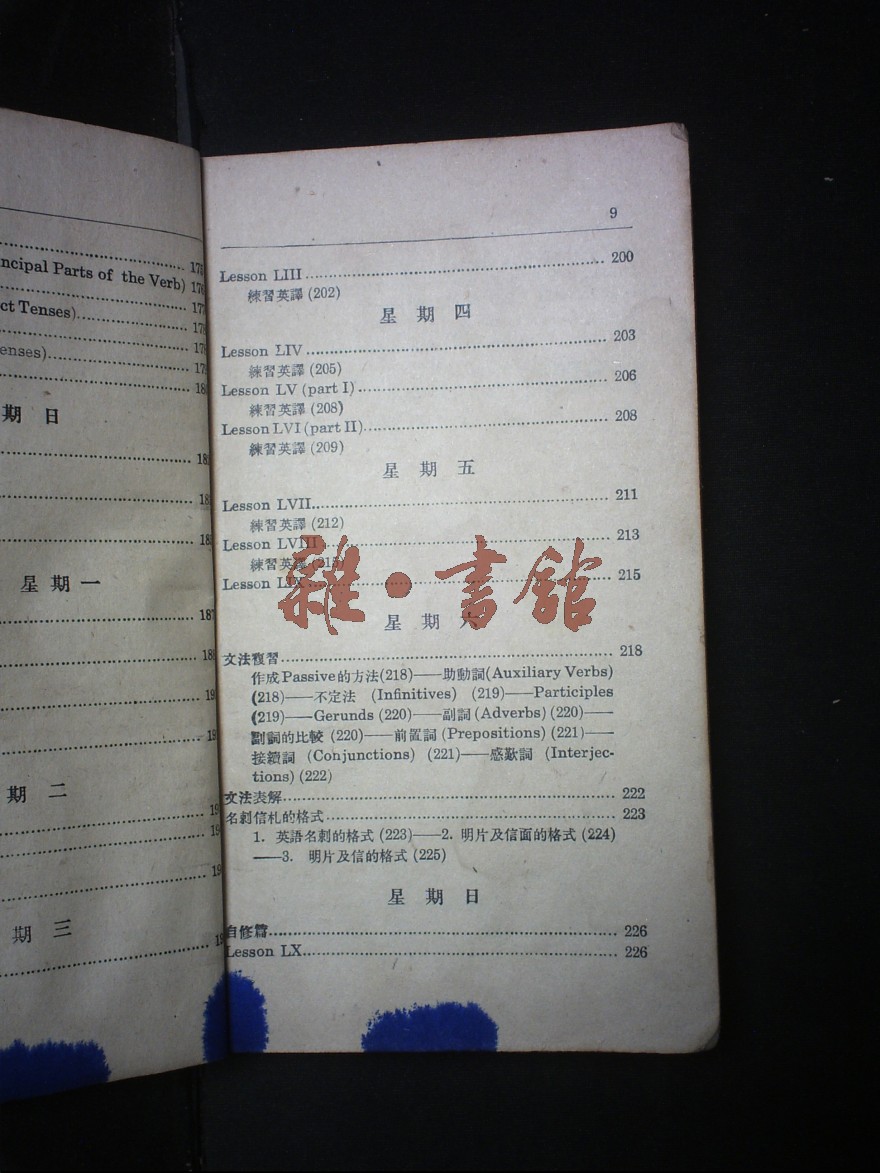 175
ncipal Parts of the Verb) 176
177
ct Tenses)
178
enses)
期 日
星 期 一
187
期 二
期 三
9
Lesson LIII 200
練習英譯 (202)
星 期 四
Lesson LIV 203
練習英譯 (205)
Lesson LV (part I) 206
練習英譯 (208)
Lesson LVI (part II) 208
練習英譯 (209)
星 期 五
Lesson LVII 211
練習英譯 (212)
Lesson LVIII 213
練習英譯 (215)
Lesson LIX 215
雜·書館
星 期 六
文法複習 218
作成Passive的方法(218)——助動詞(Auxiliary Verbs)
(218)——不定法 (Infinitives) (219)——Participles
(219)——Gerunds (220)——副詞(Adverbs) (220)——
副詞的比較 (220)——前置詞(Prepositions) (221)——
接續詞 (Conjunctions) (221)——感歎詞 (Interjec-
tions) (222)
文法表解 222
名刺信札的格式 223
1. 英語名刺的格式 (223)——2. 明片及信面的格式 (224)
——3. 明片及信的格式 (225)
星 期 日
自修篇 226
Lesson LX 226